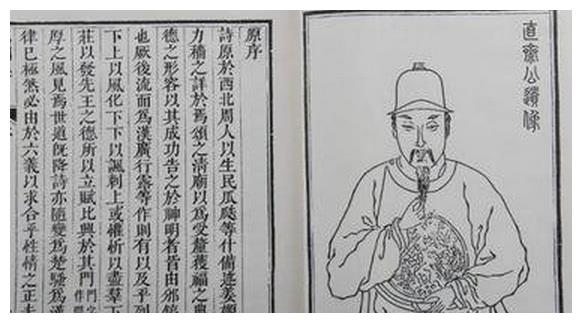 直齋公遺像
原序
詩原於西北周人以生民瓜瓞等什備述姜嫄
力穡之詳於焉頌之清廟以為受釐獲福之典
德之形容以其成功告之於神明者皆由
也厥後流而為漢廣行露等作則有以及乎列
下上以風化下下以諷刺上或析以盡羣下
莊以發先王之德所以立賦比興於其門
厚之風見焉世道既降詩亦隨變為楚騷為漢
律已極然必由於六義以求合乎性情之正夫